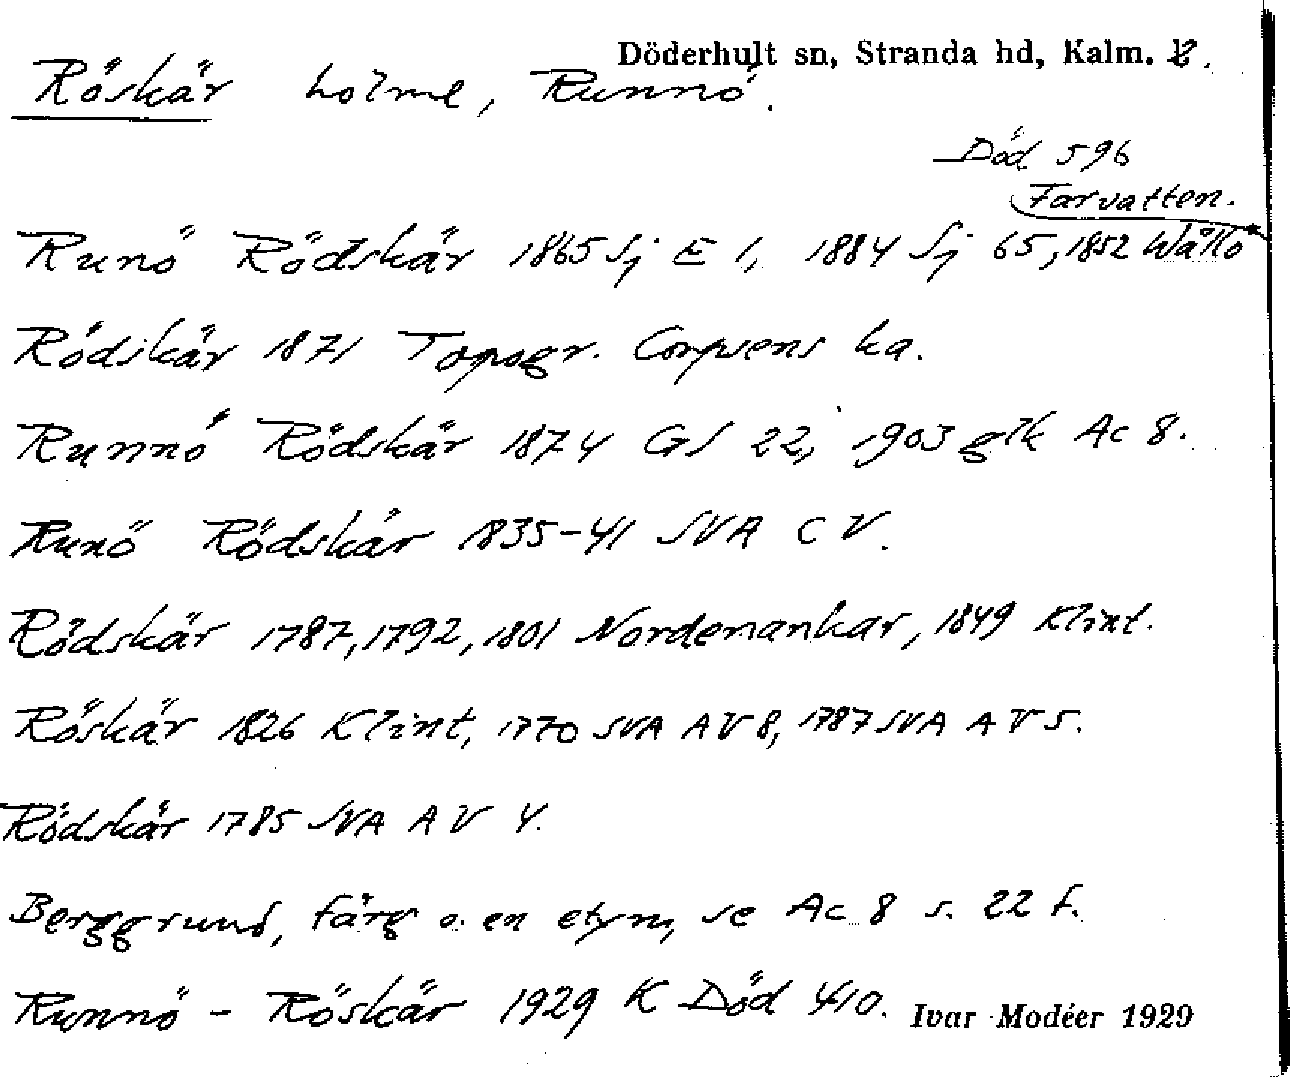 Döderhult sn, Stranda hd, Kalm. l.
Röskär holme, Runnö.
Död 596
Farvatten.
Runö Rödskär 1865 Sj E 1, 1884 Sj 65, 1852 Wållo
Rödskär 1871 Topogr. Corpsens ka.
Runnö Rödskär 1874 GS 22, 1903 glk Ac 8.
Runö Rödskär 1835-41 SVA C V.
Rödskär 1787, 1792, 1801 Nordenankar, 1849 Klint.
Röskär 1826 Klint, 1770 SVA A V 8, 1787 SVA A V 5.
Rödskär 1785 SVA A V 4.
Berggrund, färg o. en etym, se Ac 8 s. 22 f.
Runnö - Röskär 1929 K Död 410.
Ivar Modéer 1929